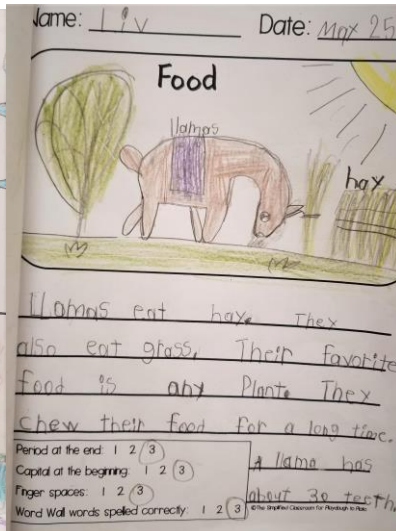 Name: Liv Date: May 25
Food
llamas
hay
Llamas eat hay. They
also eat grass. Their favorite
food is any Plant. They
chew their food for a long time.
Period at the end: 1 2 3
Capital at the beginning: 1 2 3
Finger spaces: 1 2 3
Word Wall words spelled correctly: 1 2 3
A llama has
about 30 teeth.
©The Simplified Classroom for Playdough to Plato